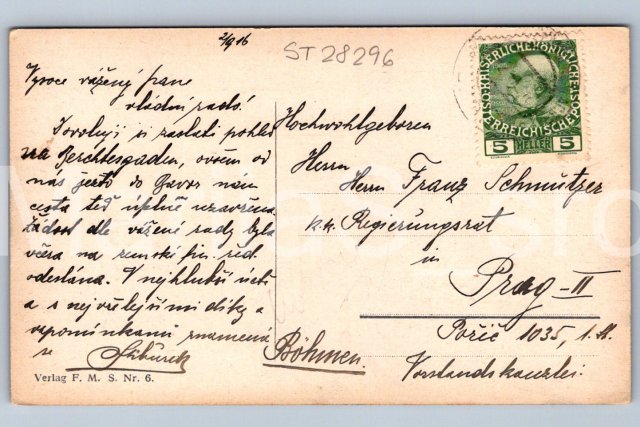 2/9 16
ST 28296
Vysoce vážený pane
vládní rado!
Dovoluji si zaslati pohled
na Berchtesgaden, ovšem od
nás, jeżto do Bavor nám
cesta teď úplně uzavřena.
Žádost dle vážené rady byla
včera na zemské fin. řed.
odeslána. V nejhlubší úctě
a s nejvřelejšími díky a
vzpomínkami znamená
se
Hochwohlgeboren
Herrn
Herrn Franz Schmützer
k.k. Regierungsrat
in
Prag-II
Poříč 1035, 1. St.
Böhmen.
Vorstandskanzlei.
KAISERLICHE KÖNIGLICHE
ÖSTERREICHISCHE POST
5 HELLER 5
Verlag F. M. S. Nr. 6.